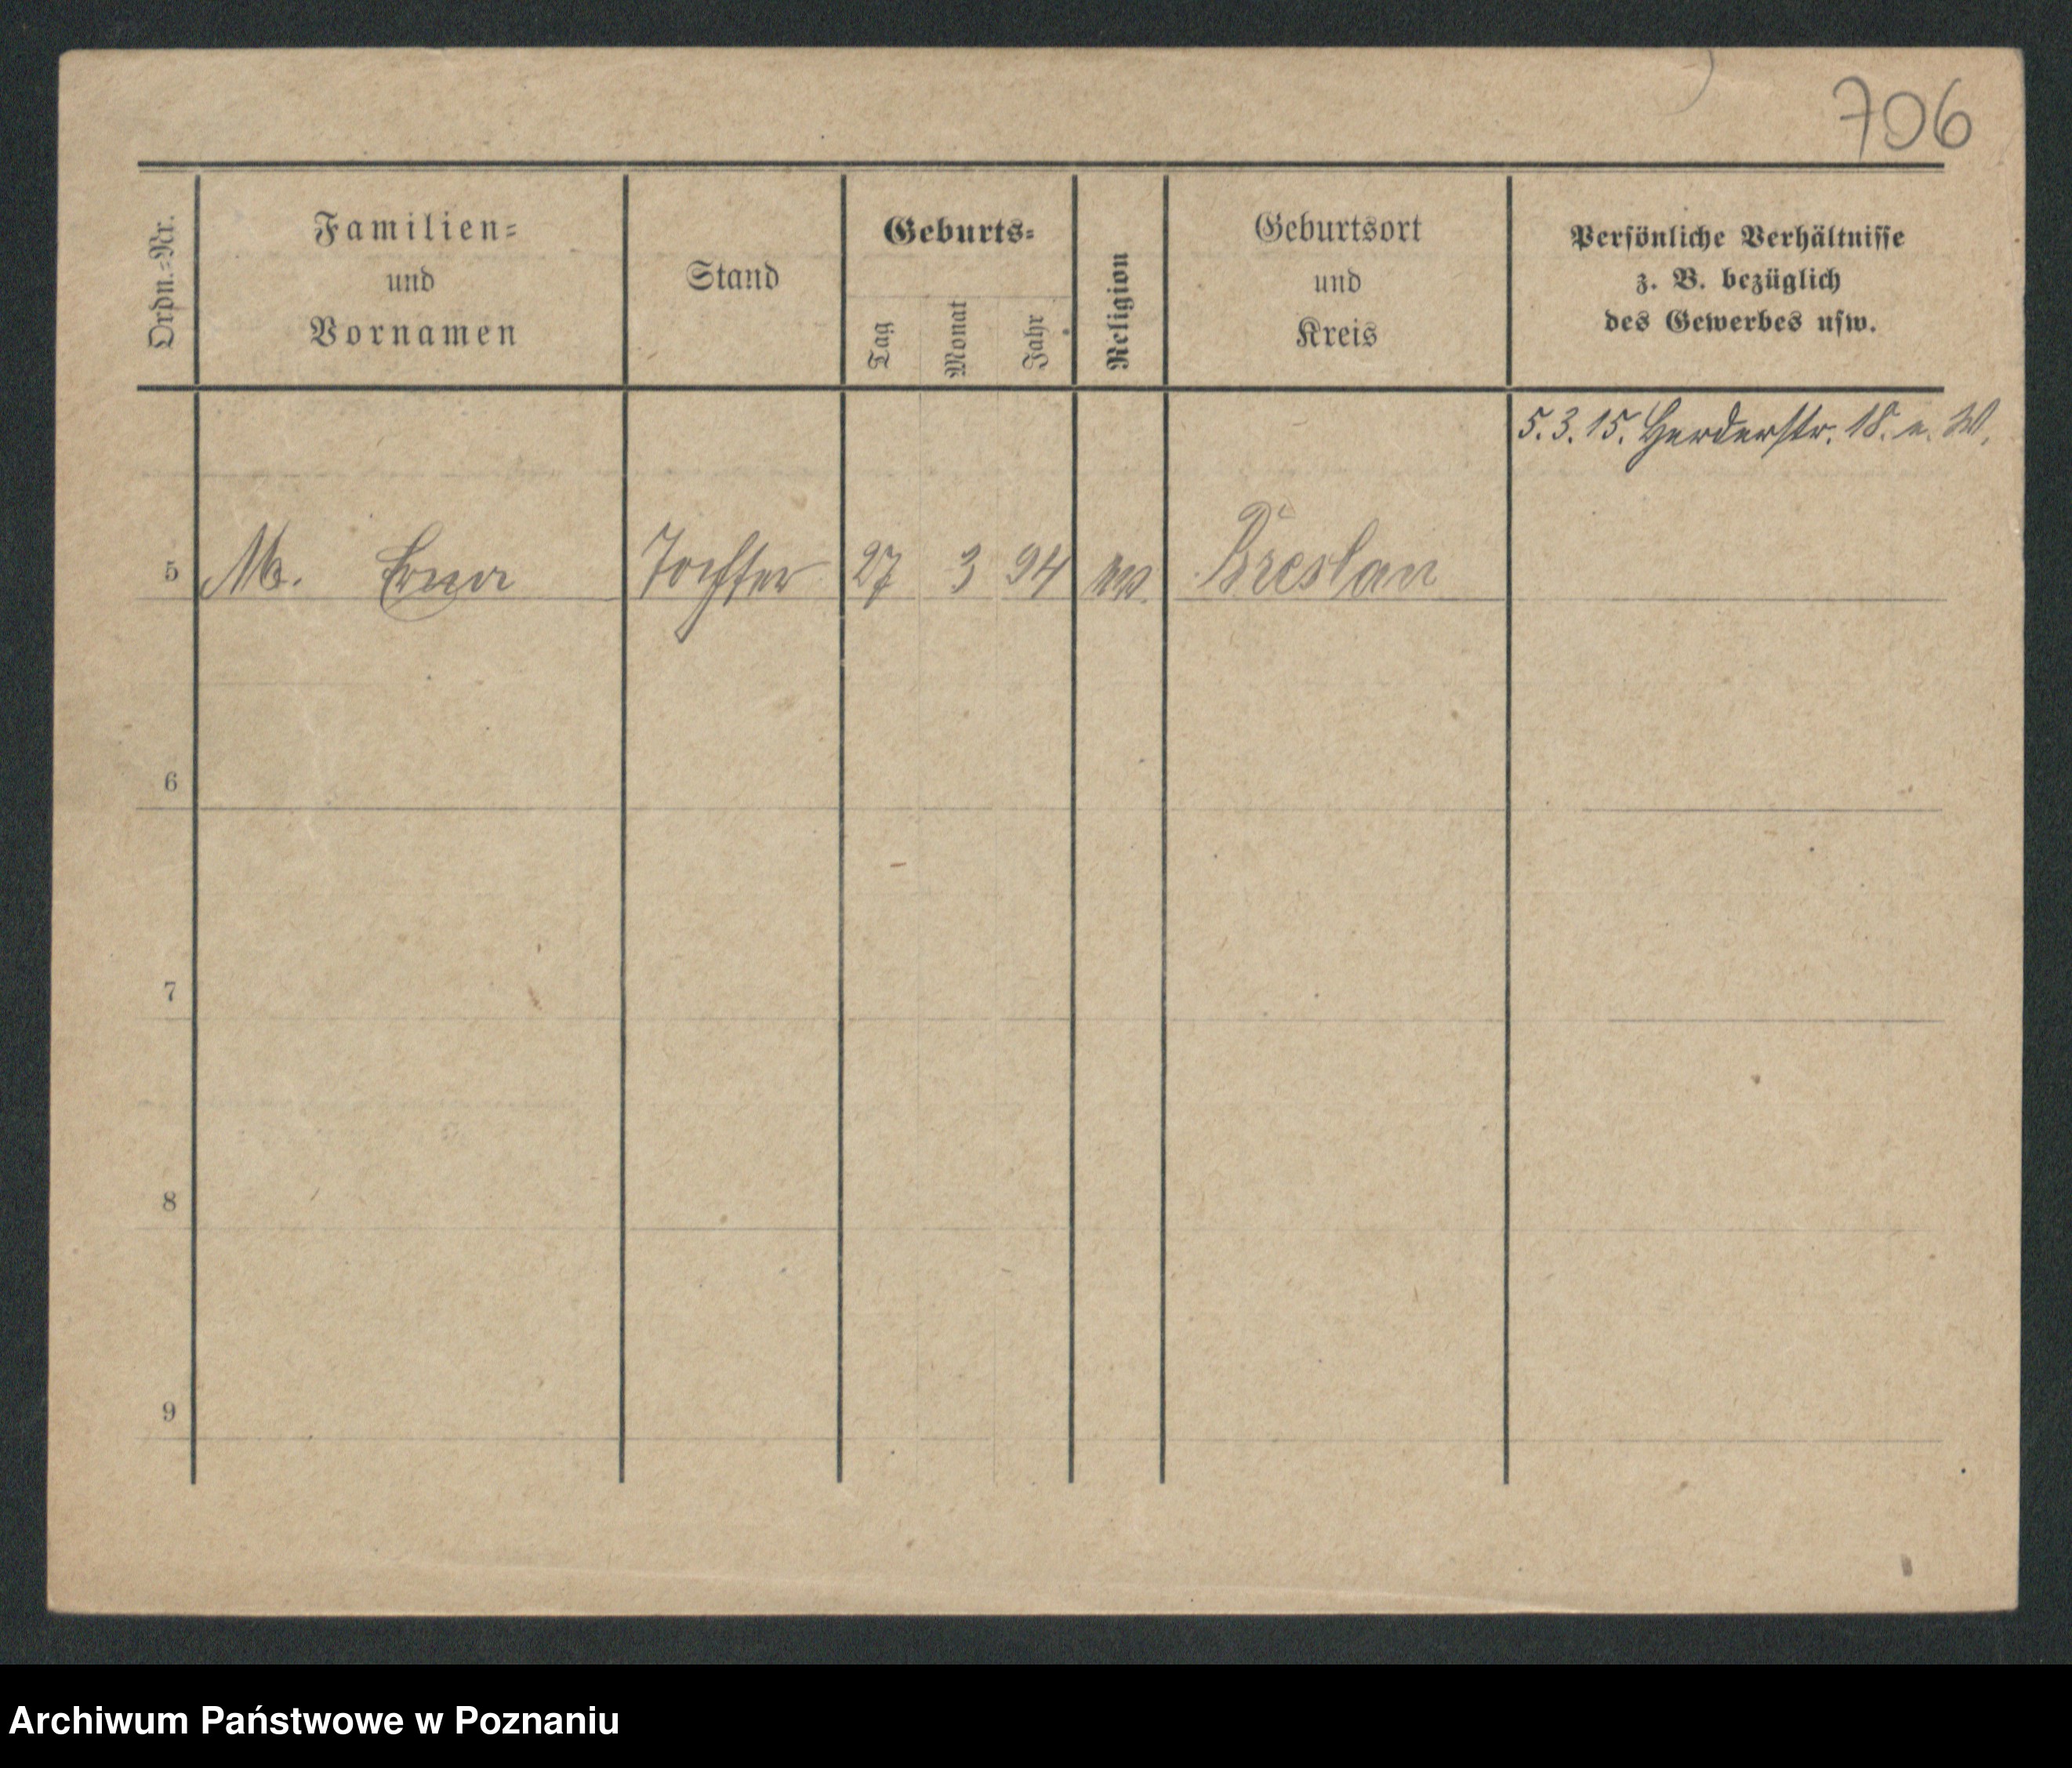 706
Ordn.-Nr.
Familien-
und
Vornamen
Stand
Geburts-
Tag
Monat
Jahr
Religion
Geburtsort
und
Kreis
Persönliche Verhältnisse
z. B. bezüglich
des Gewerbes usw.
5.3.15. Herderstr. 18. e. W.
5 M. Erna Tochter 27 3 94 Breslau
6
7
8
9
Archiwum Państwowe w Poznaniu